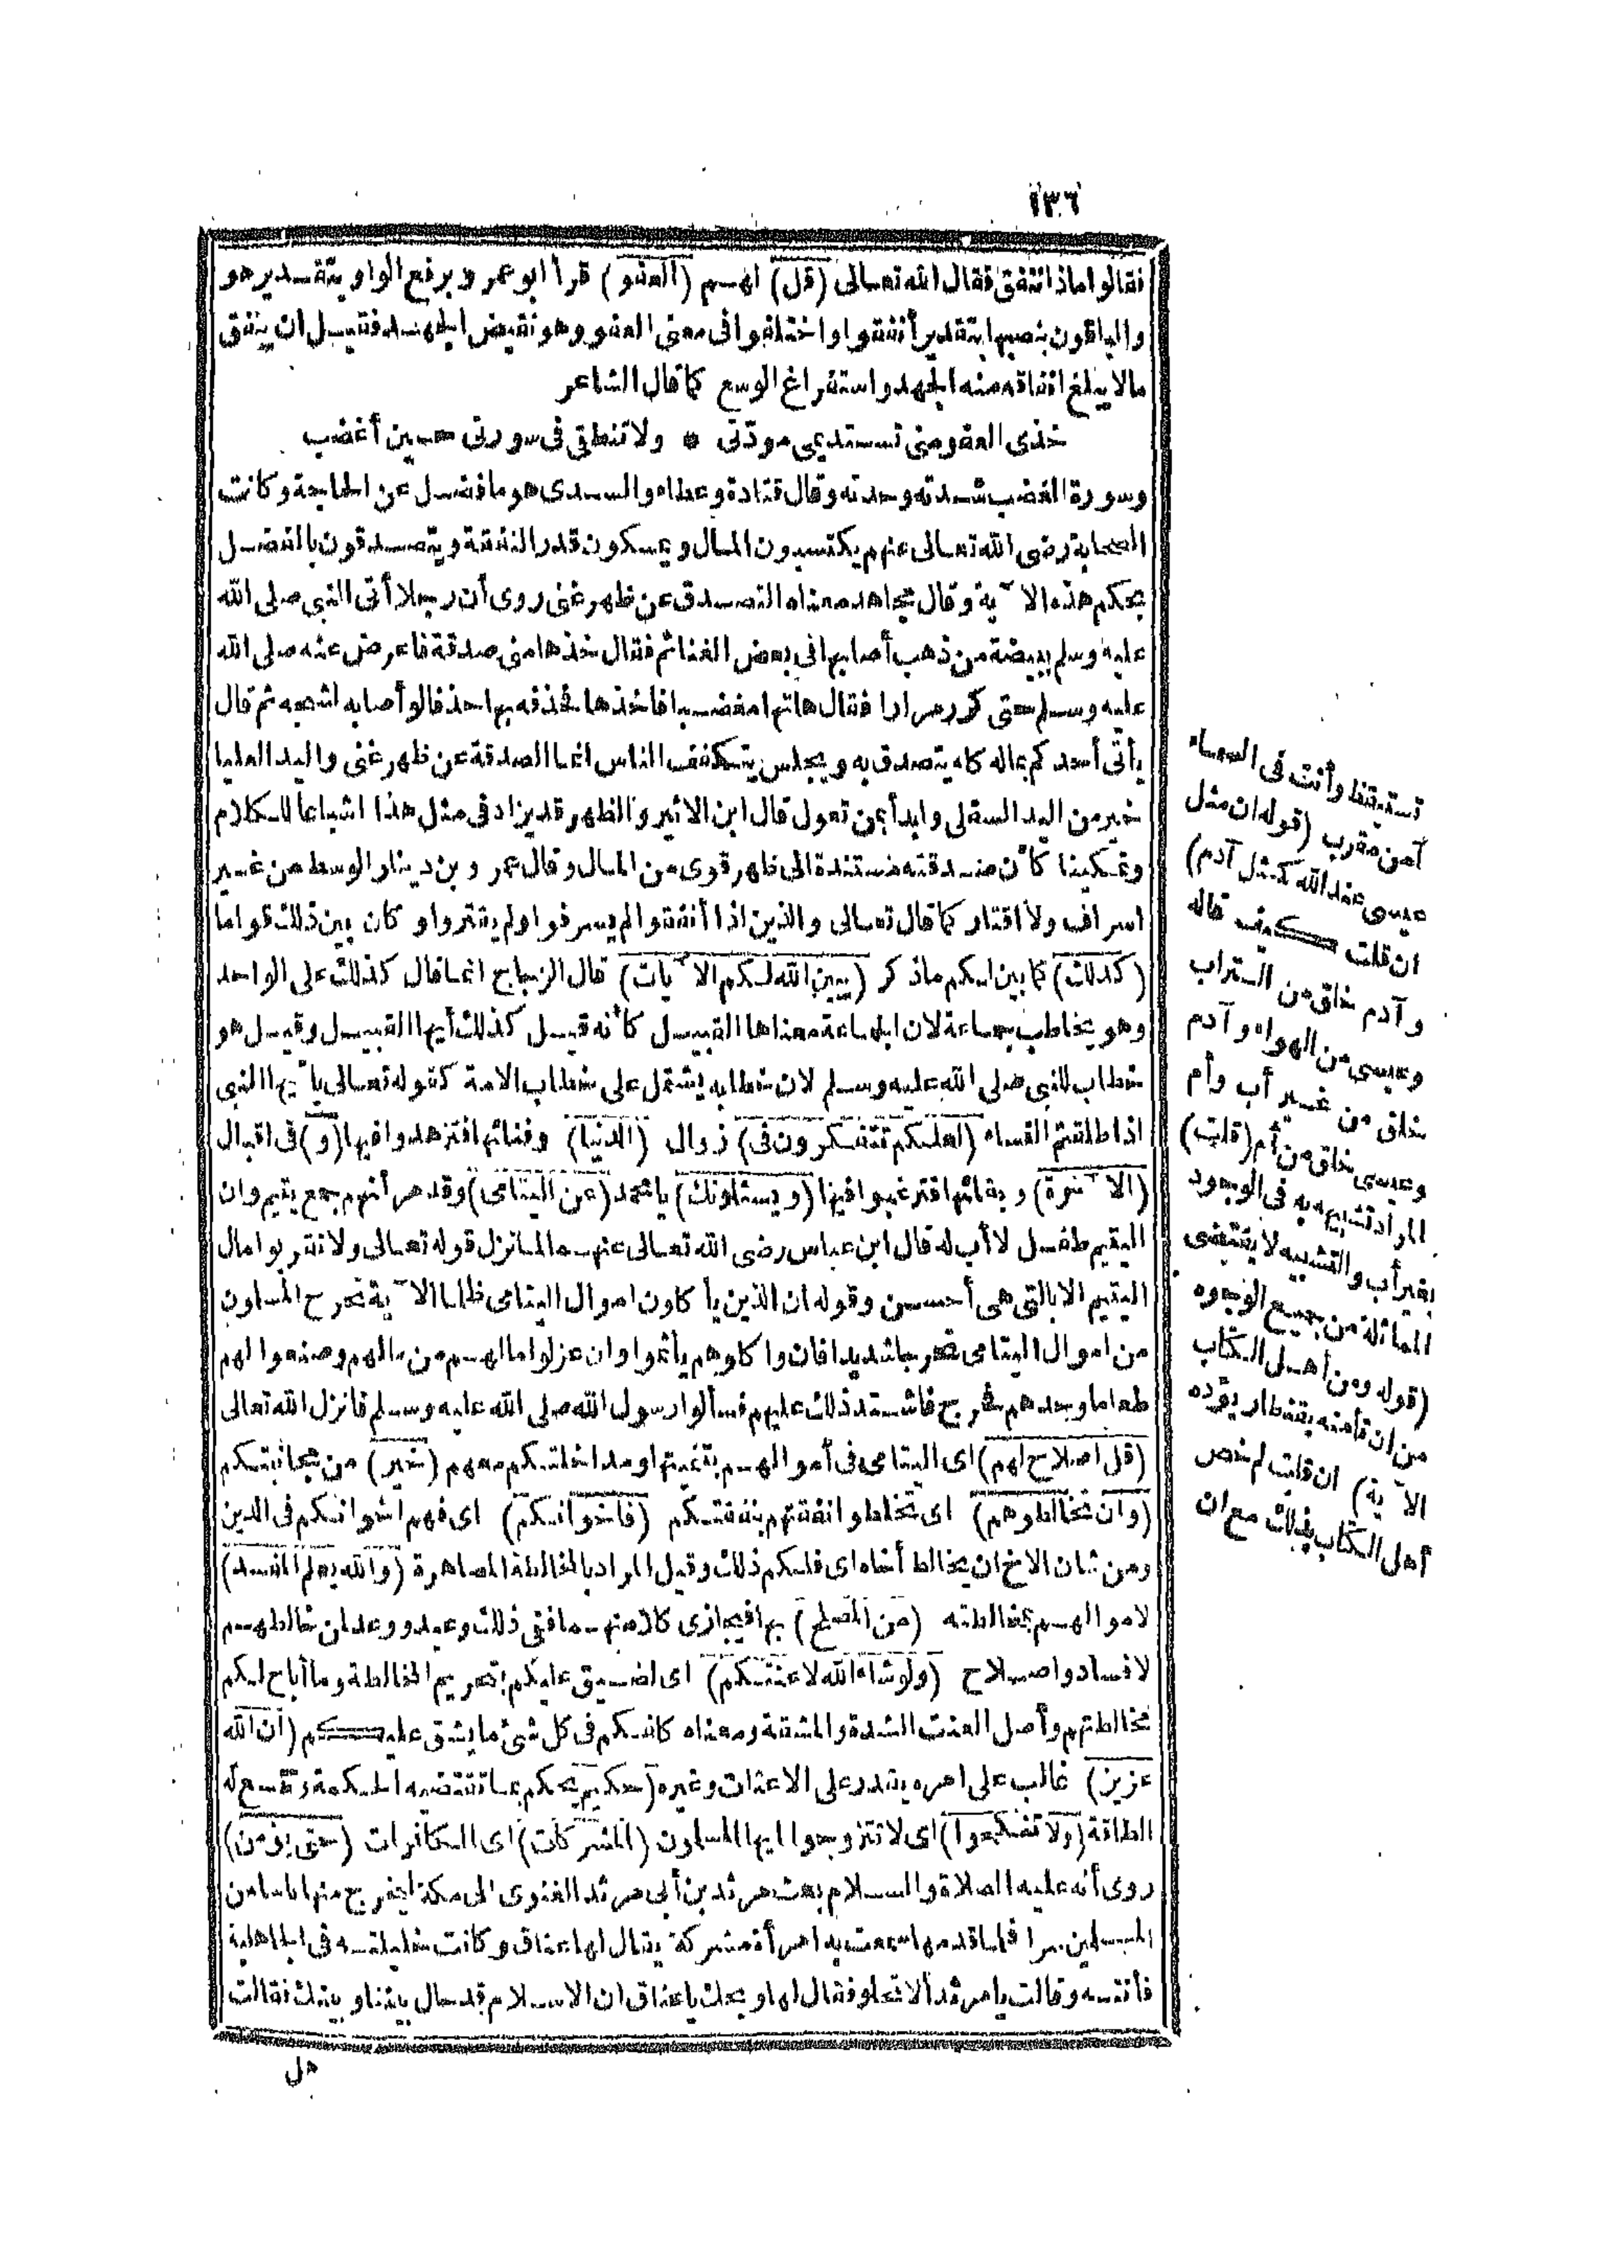 ١٣٦
فقالوا ماذا ننفق فقال الله تعالى (قل) لهم (العفو) قرأ ابو عمرو برفع الواو بتقدير هو
والباقون بنصبها بتقدير أنفقوا واختلفوا فى معنى العفو وهو نقيض الجهد فقيل ان ينفق
مالا يبلغ انفاقه منه الجهد واستفراغ الوسع كما قال الشاعر
خذى العفو منى تستديمى مودّتى * ولا تنطقى فى سورتى حين أغضب
وسورة الغضب شدته وحدته وقال قتادة وعطاء والسدى هو ما فضل عن الحاجة وكانت
الصحابة رضى الله تعالى عنهم يكتسبون المال ويمسكون قدر النفقة ويتصدقون بالفضل
بحكم هذه الآية وقال مجاهد معناه التصدق عن ظهر غنى روى أن رجلا أتى النبى صلى الله
عليه وسلم ببيضة من ذهب أصابها فى بعض الغنائم فقال خذها منى صدقة فاعرض عنه صلى الله
عليه وسلم حتى كرر مرارا فقال هاتها مغضبا فاخذها فخذفه بها خذفا لو أصابه لشجه ثم قال
يأتى أحدكم بماله كله يتصدق به ويجلس يتكفف الناس انما الصدقة عن ظهر غنى واليد العليا
خير من اليد السفلى وابدأ بمن تعول قال ابن الاثير والظهر قد يزاد فى مثل هذا اشباعا للكلام
وتمكينا كأن صدقته مستندة الى ظهر قوى من المال وقال عمرو بن دينار الوسط من غير
اسراف ولا اقتار كما قال تعالى والذين اذا أنفقوا لم يسرفوا ولم يقتروا وكان بين ذلك قواما
(كذلك) كما بين لكم ماذكر (يبين الله لكم الآيات) قال الزجاج انما قال كذلك على الواحد
وهو يخاطب جماعة لان الجماعة معناها القبيل كأنه قيل كذلك أيها القبيل وقيل هو
خطاب للنبى صلى الله عليه وسلم لان خطابه يشتمل على خطاب الامة كقوله تعالى يا أيها النبى
اذا طلقتم النساء (لعلكم تتفكرون فى) زوال (الدنيا) وفنائها فتزهدوا فيها (و) فى اقبال
(الآخرة) وبقائها فترغبوا فيها (ويسئلونك) يا محمد (عن اليتامى) وقد مر أنهم جمع يتيم وان
اليتيم طفل لا أب له قال ابن عباس رضى الله تعالى عنهما لما نزل قوله تعالى ولا تقربوا مال
اليتيم الا بالتى هى أحسن وقوله ان الذين يأكلون اموال اليتامى ظلما الآية تحرج المسلمون
من اموال اليتامى تحرجا شديدا فان واكلوهم يأثموا وان عزلوا ما لهم من مالهم وصنعوا لهم
طعاما وحدهم فحرج فاشتد ذلك عليهم فسألوا رسول الله صلى الله عليه وسلم فانزل الله تعالى
(قل اصلاح لهم) اى اليتامى فى أموالهم بتنميتها ومداخلتكم معهم (خير) من مجانبتكم
(وان تخالطوهم) اى تخلطوا نفقتهم بنفقتكم (فاخوانكم) اى فهم اخوانكم فى الدين
ومن شان الاخ ان يخالط أخاه اى فلكم ذلك وقيل المراد بالمخالطة المصاهرة (والله يعلم المفسد)
لاموالهم بمخالطته (من المصلح) بها فيجازى كلا منهما ففى ذلك وعيد ووعد لمن خالطهم
لافساد واصلاح (ولو شاء الله لاعنتكم) اى لضيق عليكم بتحريم المخالطة وما أباح لكم
مخالطتهم وأصل العنت الشدة والمشقة ومعناه كلفكم فى كل شئ ما يشق عليكم (ان الله
عزيز) غالب على امره يقدر على الاعنات وغيره (حكيم) يحكم بما تقتضيه الحكمة وتتسع له
الطاقة (ولا تنكحوا) اى لا تتزوجوا ايها المسلمون (المشركات) اى الكافرات (حتى يؤمن)
روى أنه عليه الصلاة والسلام بعث مرثد بن أبى مرثد الغنوى الى مكة ليخرج منها ناسا من
المسلمين سرا فلما قدمها سمعت به امرأة مشركة يقال لها عناق وكانت خليلته فى الجاهلية
فأتته وقالت يا مرثد ألا تخلو فقال لها ويحك يا عناق ان الاسلام قد حال بيننا وبينك فقالت
هل
تستيقظ وأنت فى السماء
آمن مقرب (قوله ان مثل
عيسى عند الله كمثل آدم)
ان قلت كيف قاله
وآدم خلق من التراب
وعيسى من الهواء وآدم
خلق من غير أب وأم
وعيسى خلق من أم (قلت)
المراد تشبيهه به فى الوجود
بغير أب والتشبيه لا يقتضى
المماثلة من جميع الوجوه
(قوله ومن أهل الكتاب
من ان تأمنه بقنطار يؤده
الآية) ان قلت لم خص
أهل الكتاب بذلك مع ان